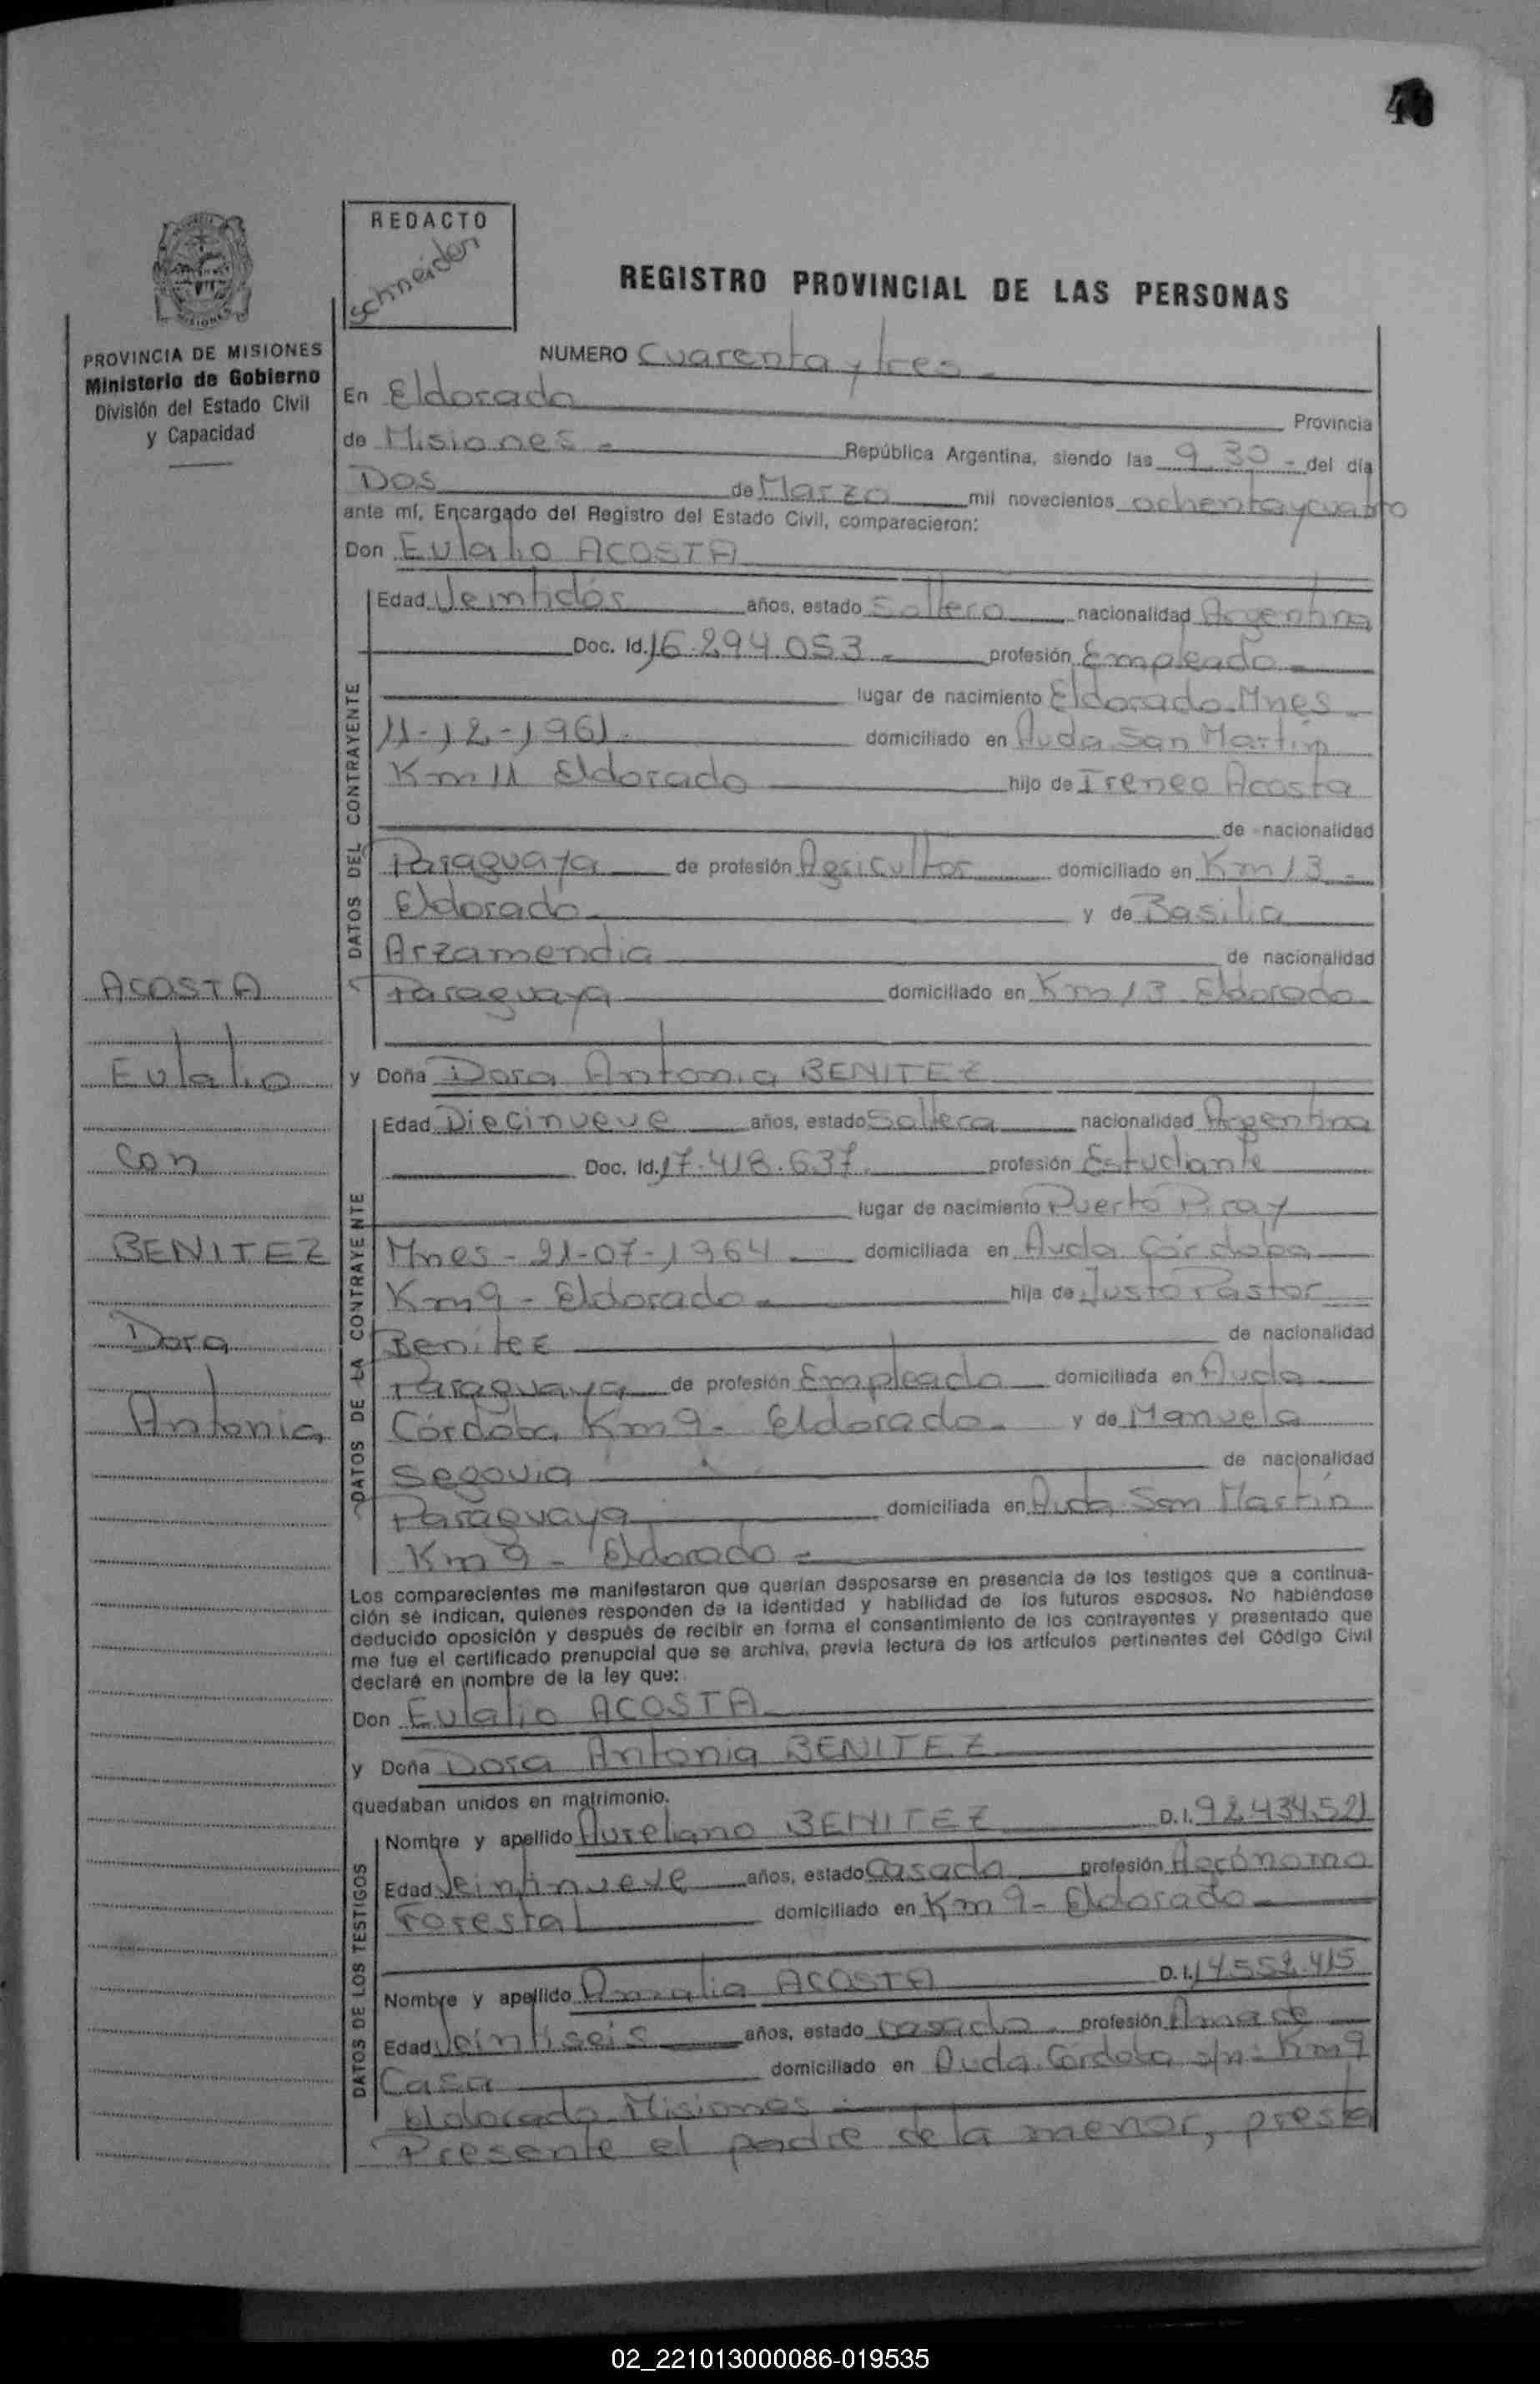 REDACTO
Schneider
REGISTRO PROVINCIAL DE LAS PERSONAS
MISIONES
PROVINCIA DE MISIONES
Ministerio de Gobierno
División del Estado Civil
y Capacidad
NUMERO Cuarenta y tres -
En Eldorado Provincia
de Misiones - República Argentina, siendo las 9.30 - del día
Dos de Marzo mil novecientos ochenta y cuatro
ante mí, Encargado del Registro del Estado Civil, comparecieron:
Don Eulalio ACOSTA
DATOS DEL CONTRAYENTE
Edad Veintidós años, estado Soltero nacionalidad Argentina
Doc. Id. 16.294.053 - profesión Empleado -
lugar de nacimiento Eldorado-Mnes -
11-12-1961. domiciliado en Avda. San Martín
Km 11 Eldorado hijo de Ireneo Acosta
de nacionalidad
Paraguaya de profesión Agricultor domiciliado en Km 13 -
Eldorado y de Basilia
Arzamendia de nacionalidad
Paraguaya domiciliado en Km 13 Eldorado
y Doña Dora Antonia BENITEZ
DATOS DE LA CONTRAYENTE
Edad Diecinueve años, estado Soltera nacionalidad Argentina
Doc. Id. 17.418.637. profesión Estudiante
lugar de nacimiento Puerto Piray
Mnes - 21-07-1964 - domiciliada en Avda. Córdoba
Km 9 - Eldorado - hija de Justo Pastor
Benitez de nacionalidad
Paraguaya de profesión Empleado domiciliada en Avda
Córdoba Km 9- Eldorado - y de Manuela
Segovia de nacionalidad
Paraguaya domiciliada en Avda. San Martín
Km 9 - Eldorado -
Los comparecientes me manifestaron que querían desposarse en presencia de los testigos que a continua-
ción se indican, quienes responden de la identidad y habilidad de los futuros esposos. No habiéndose
deducido oposición y después de recibir en forma el consentimiento de los contrayentes y presentado que
me fue el certificado prenupcial que se archiva, previa lectura de los artículos pertinentes del Código Civil
declaré en nombre de la ley que:
Don Eulalio ACOSTA
y Doña Dora Antonia BENITEZ
quedaban unidos en matrimonio.
DATOS DE LOS TESTIGOS
Nombre y apellido Aureliano BENITEZ D.I. 92.434.521
Edad Veintinueve años, estado Casado profesión Agrónomo
Forestal domiciliado en Km 9- Eldorado -
Nombre y apellido Amalia ACOSTA D.I. 14.552.415
Edad Veintiseis años, estado casada - profesión Ama de
Casa domiciliado en Avda. Córdoba s/n - Km 9
Eldorado Misiones -
Presente el padre de la menor, presta
ACOSTA
Eulalio
Con
BENITEZ
Dora
Antonia
02_221013000086-019535